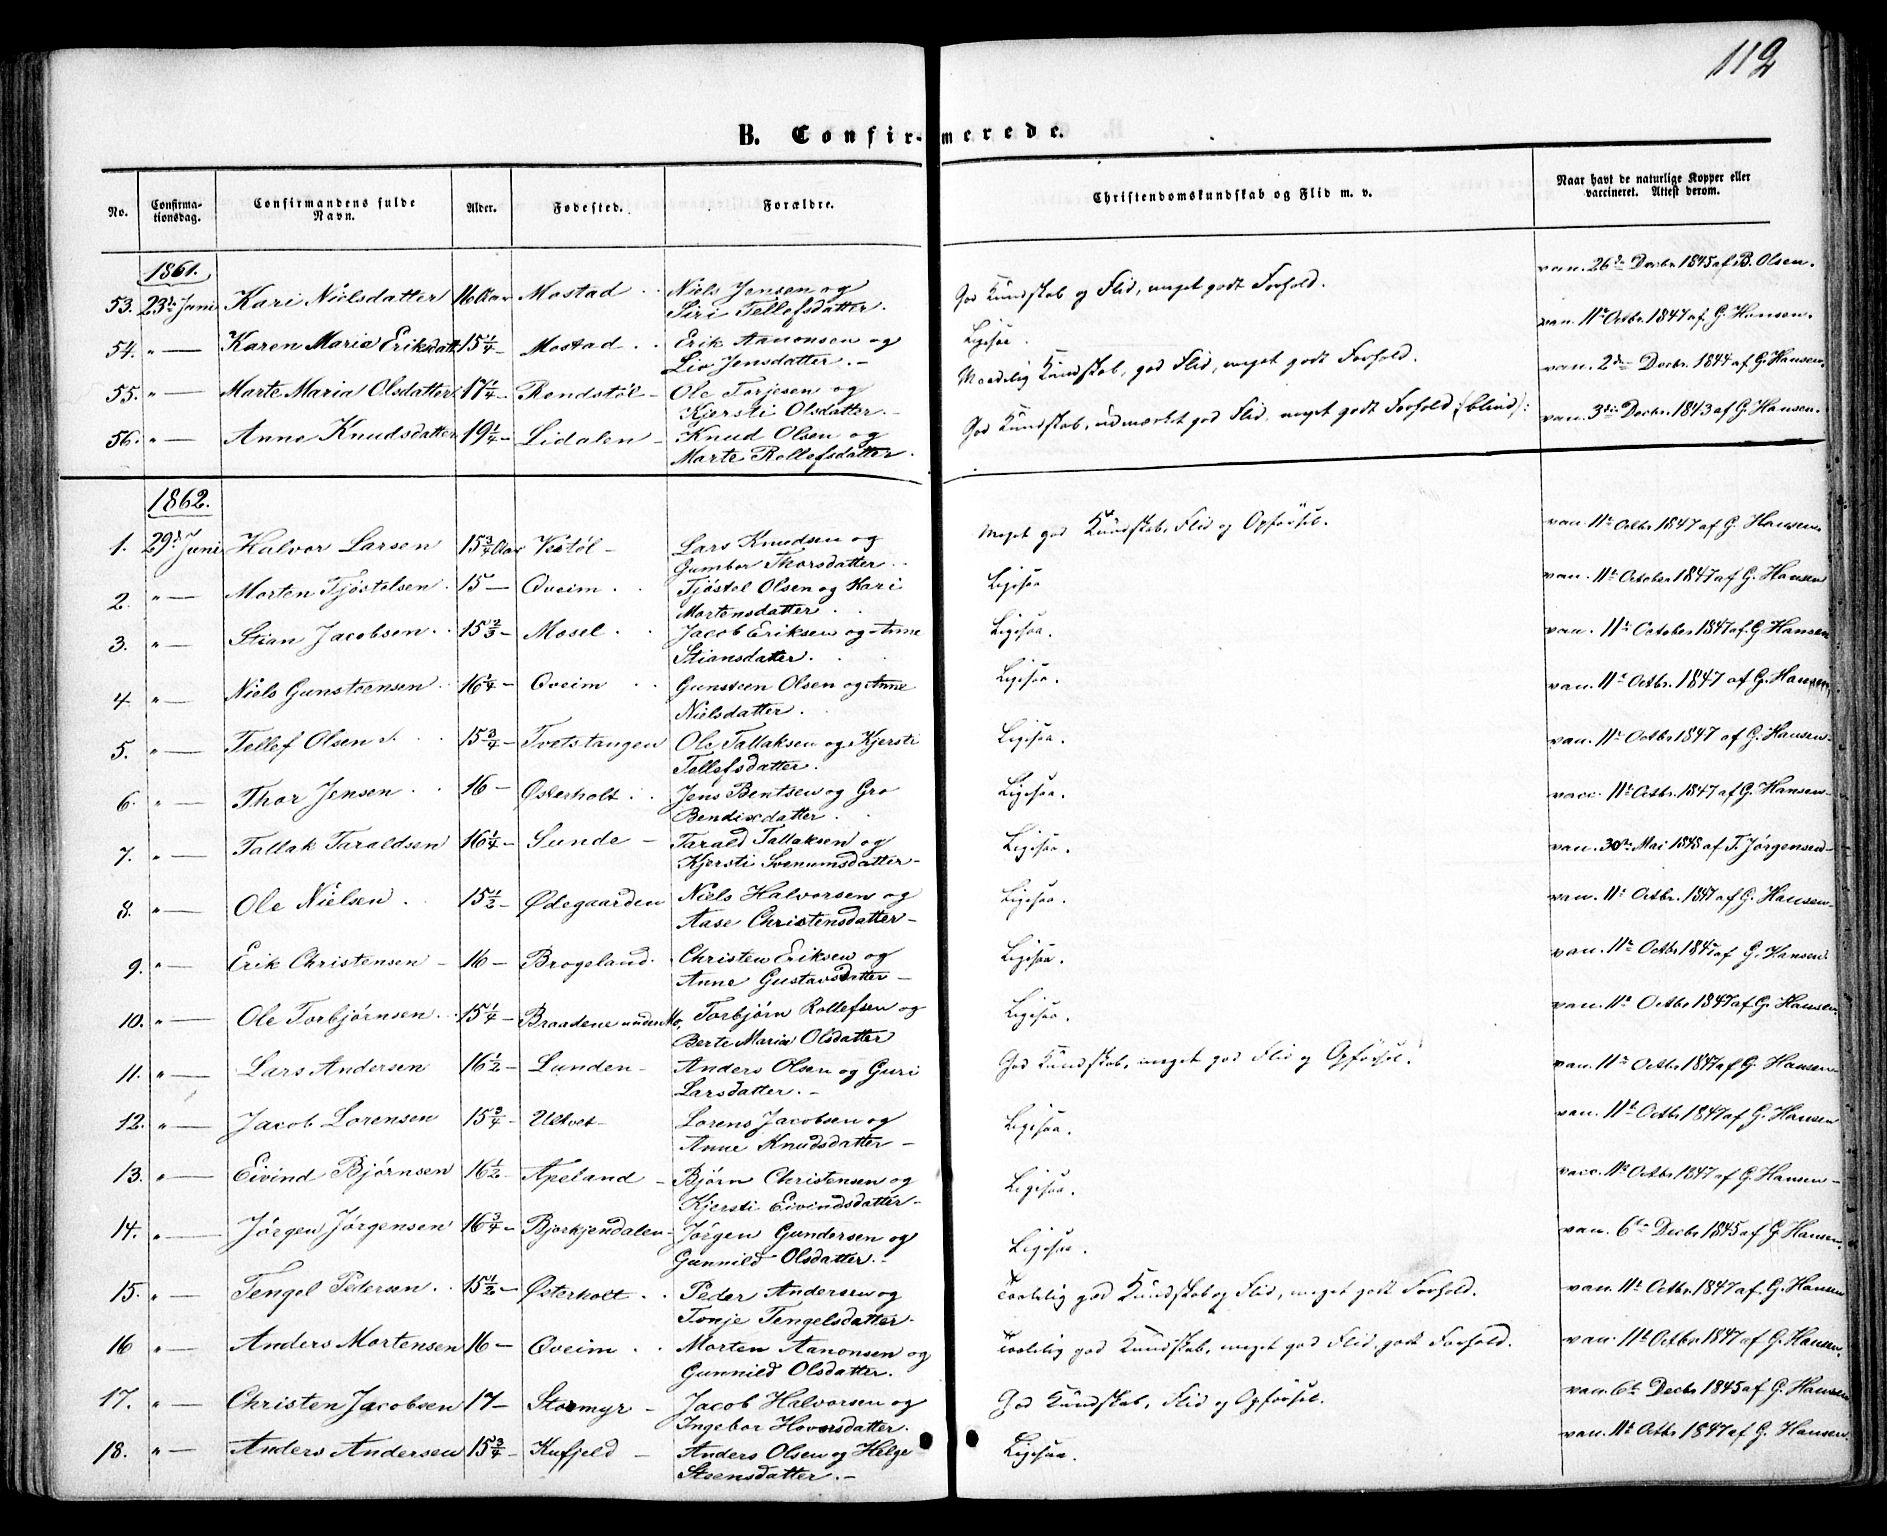 112
B. Confirmerede.
No. Confirma-tionsdag. Confirmandens fulde Navn. Alder. Fødested. Forældre. Christendomskundskab og Flid m. v. Naar havt de naturlige Kopper eller vaccineret. Attest derom.
1861.
53. 23de Juni Kari Nielsdatter 16 Aar Mostad Niels Jensen og God Kundskab og Flid, meget godt Forhold. vac. 26de Decbr 1845 af B. Olsen.
Siri Tellefsdatter.
54. " — Karen Marie Eriksdatt. 15 1/4 – Mostad Erik Aanonsen og Ligesaa. vac. 11te Octbr. 1847 af G. Hansen.
Liv Jensdatter. –
55. " — Marte Maria Olsdatter 17 1/4 – Rendstöl – Ole Torjesen og Maadelig Kundskab, god Flid, meget godt Forhold. vac. 2den Decbr. 1844 af G. Hansen.
Kjersti Olsdatter. –
56. " — Anne Knudsdatter 19 1/4 – Lidalen – Knud Olsen og God Kundskab, udmærket god Flid, meget godt Forhold (blind): vac. 3die Decbr. 1843 af G. Hansen.
Marte Rollefsdatter.
1862.
1. 29de Juni Halvor Larsen 15 3/4 Aar Vestöl – Lars Knudsen og Meget god Kundskab, Flid og Opførsel. vac. 11te Octbr 1847 af G. Hansen.
Gumbor Thorsdatter
2. " — Morten Tjöstelsen 15 — Oveim Tjöstel Olsen og Kari Ligesaa vac. 11te October 1847 af G. Hansen
Mortensdatter
3. " — Stian Jacobsen 15 2/3 – Mosel Jacob Eriksen og Anne Ligesaa. vac. 11te October 1847 af G. Hansen
Stiansdatter.
4. " — Niels Gunsteensen 16 1/4 – Oveim Gunsteen Olsen og Anne Ligesaa. vac. 11te Octbr. 1847 af G. Hansen
Nielsdatter.
5. " — Tellef Olsen 15 3/4 – Tvetstangen Ole Tallaksen og Kjersti Ligesaa. vac. 11te Octbr 1847 af G. Hansen
Tellefsdatter.
6. " — Thor Jensen 16 – Østerholt Jens Bentsen og Gro Ligesaa. vacc. 11te Octbr. 1847 af G. Hansen
Bendixdatter
7. " — Tallak Taraldsen 16 1/4 – Sunde – Tarald Tallaksen og Ligesaa. vac. 30te Mai 1848 af T. Jørgensen
Kjersti Svenumsdatter –
8. " — Ole Nielsen 15 1/2 – Ødegaarden Niels Halvorsen og Ligesaa. vac. 11te Octbr. 1847 af G. Hansen
Aase Christensdatter –
9. " — Erik Christensen – 16 – Brogeland Christen Eriksen og Ligesaa. vac. 11te Octbr 1847 af G. Hansen
Anne Gustavsdatter –
10. " — Ole Torbjørnsen 15 1/4 – Braadene under Mo, Torbjørn Rollefsen og Ligesaa. vac. 11te Octbr 1847 af G. Hansen
Berte Maria Olsdatter
11. " — Lars Andersen 16 1/2 – Lunden – Anders Olsen og Guri God Kundskab, meget god Flid og Opførsel. vac. 11te Octbr 1847 af G. Hansen
Larsdatter. –
12. " — Jacob Lorensen 15 3/4 – Ulltvet – Lorens Jacobsen og Ligesaa. vac. 11te Octbr 1847 af G. Hansen
Anne Knudsdatter –
13. " — Eivind Bjørnsen 16 1/2 – Apeland – Bjørn Christensen og Ligesaa. vacc. 11te Octbr 1847 af G. Hansen –
Kjersti Eivindsdatter –
14. " — Jørgen Jørgensen 16 3/4 – Bjorkjendalen – Jørgen Gundersen og Ligesaa. vac. 6te Decbr 1845 af G. Hansen
Gunnild Olsdatter. –
15. " — Tengel Pedersen 15 1/2 – Østerholt Peder Andersen og Taalelig god Kundskab og Flid, meget godt Forhold. vac. 11te Octbr. 1847 af G. Hansen
Tonje Tengelsdatter.
16 " — Anders Mortensen 16 – Oveim Morten Aanonsen og Taalelig god Kundskab, meget god Flid, godt Forhold. vac. 11te Octbr 1847 af G. Hansen
Gunnild Olsdatter.
17. " — Christen Jacobsen 17 – Stormyr – Jacob Halvorsen og God Kundskab, Flid og Opførsel. vac. 6te Decbr 1845 af G. Hansen
Ingebor Hovorsdatter.
18. " — Anders Andersen 15 3/4 – Kufjeld – Anders Olsen og Helge Ligesaa. vac. 11te Octbr 1847 af G. Hansen
Steensdatter. –